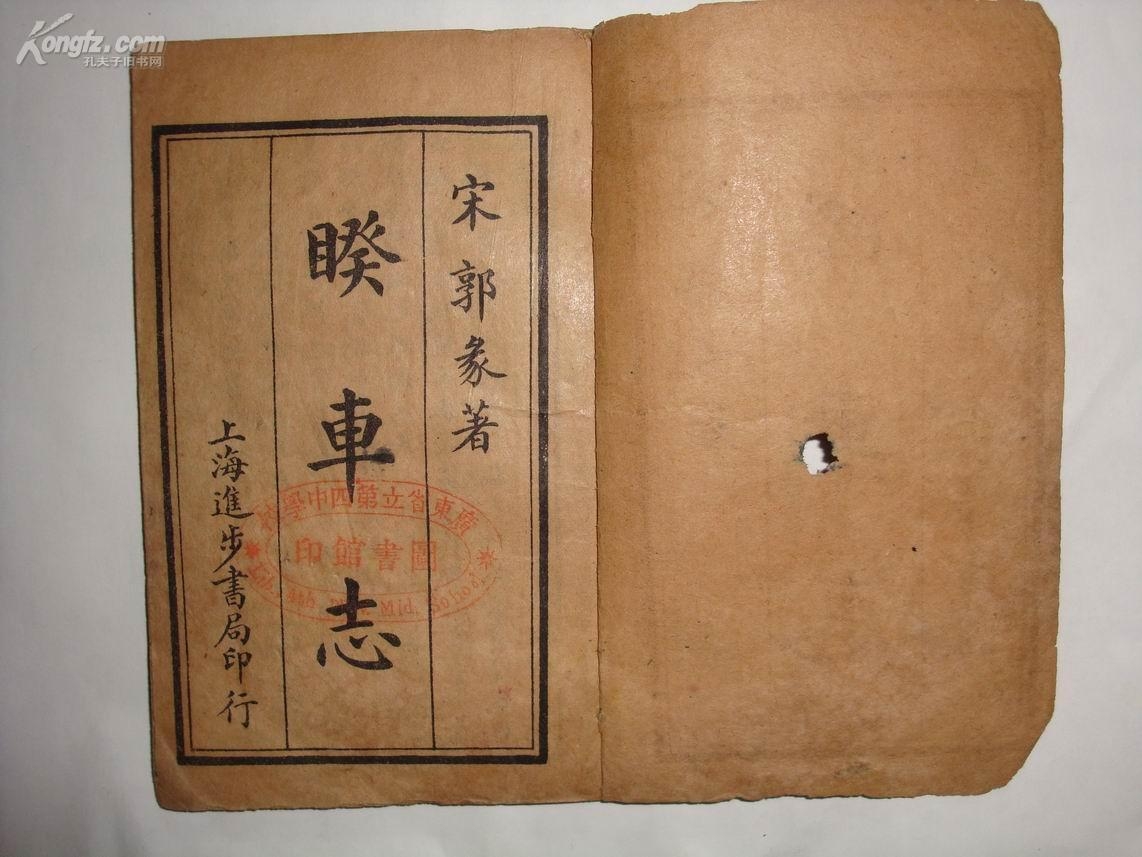 Kongfz.com
孔夫子旧书网
宋郭彖著
睽車志
上海進步書局印行
廣東省立第四中學校
圖書館印
Mid. School